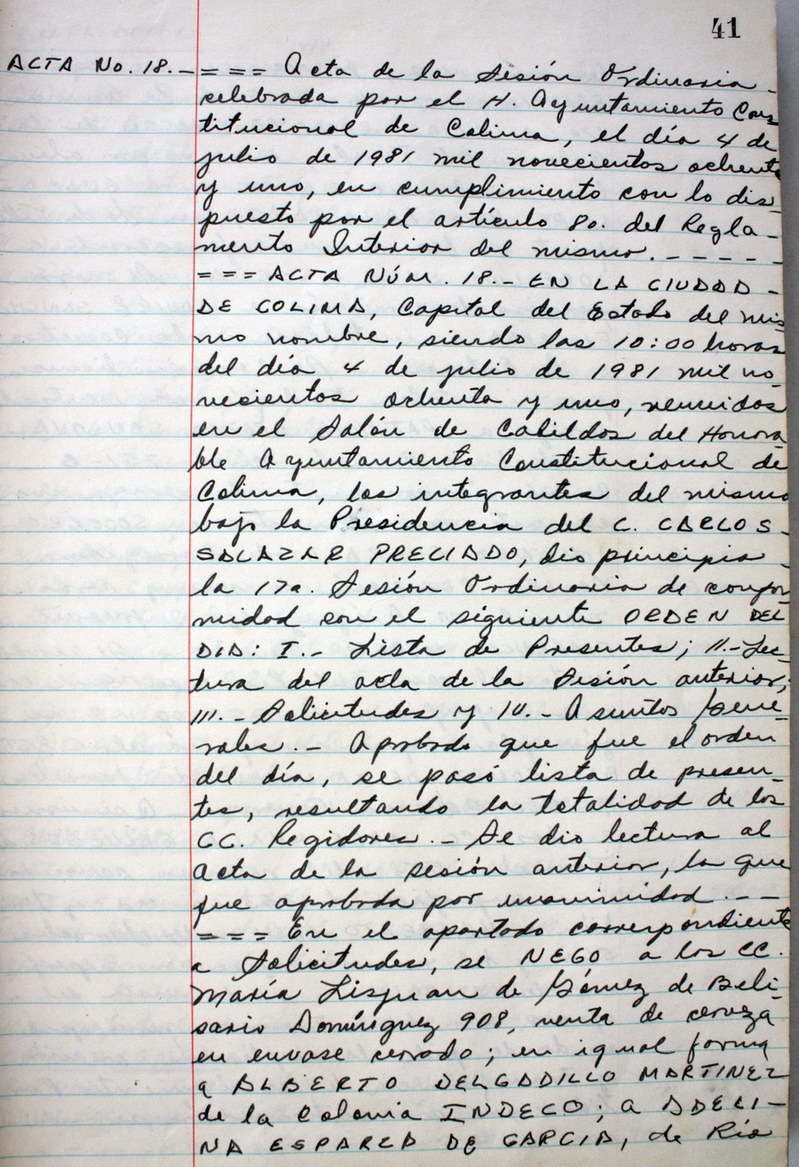 41
ACTA No. 18.- = = = Acta de la Sesión Ordinaria -
celebrada por el H. Ayuntamiento Cons
titucional de Colima, el día 4 de
julio de 1981 mil novecientos ochenta
y uno, en cumplimiento con lo dis-
puesto por el artículo 8o. del Regla-
mento Interior del mismo. - - - - -
= = = ACTA NÚM. 18.- EN LA CIUDAD -
DE COLIMA, Capital del Estado del mis
mo nombre, siendo las 10:00 horas
del día 4 de julio de 1981 mil no
vecientos ochenta y uno, reunidos
en el Salón de Cabildos del Honora
ble Ayuntamiento Constitucional de
Colima, los integrantes del mismo
bajo la Presidencia del C. CARLOS -
SALAZAR PRECIADO, dio principio -
la 17a. Sesión Ordinaria de confor
midad con el siguiente ORDEN DEL
DIA: I.- Lista de Presentes; II.- Lec-
tura del acta de la Sesión anterior;
III.- Solicitudes y IV.- Asuntos Gene-
rales.- Aprobado que fue el orden
del día, se pasó lista de presen-
tes, resultando la totalidad de los
CC. Regidores.- Se dio lectura al
acta de la sesión anterior, la que
fue aprobada por unanimidad. - - -
= = = En el apartado correspondiente
a Solicitudes, se NEGO a los CC.
María Lisjuan de Gómez de Beli-
sario Domínguez 908, venta de cerveza
en envase cerrado; en igual forma
a ALBERTO DELGADILLO MARTINEZ
de la Colonia INDECO; a ADELI-
NA ESPARZA DE GARCIA, de Río